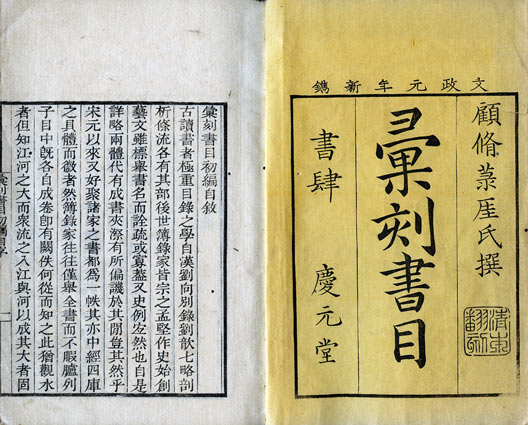 文政元年新鐫
顧脩菉厓氏撰
彙刻書目
書肆 慶元堂
彙刻書目初編自敘
古讀書者極重目錄之學自漢劉向別錄劉歆七略剖
析條流各有其部後世簿錄家皆宗之孟堅作史始創
藝文雖標舉書名而詮疏或寡蓋又史例宏然也自是
詳略兩體代有成書夾漈有所偏譏於其閒豈其然乎
宋元以來又好聚諸家之書都爲一帙其亦中經四庫
之具體而微者然簿錄家往往僅舉全書而不暇臚列
子目中旣各自成卷卽有闕佚何從而知之此猶觀水
者但知江河之大而衆流之入江與河以成其大者固
彙刻書目初編自序 一